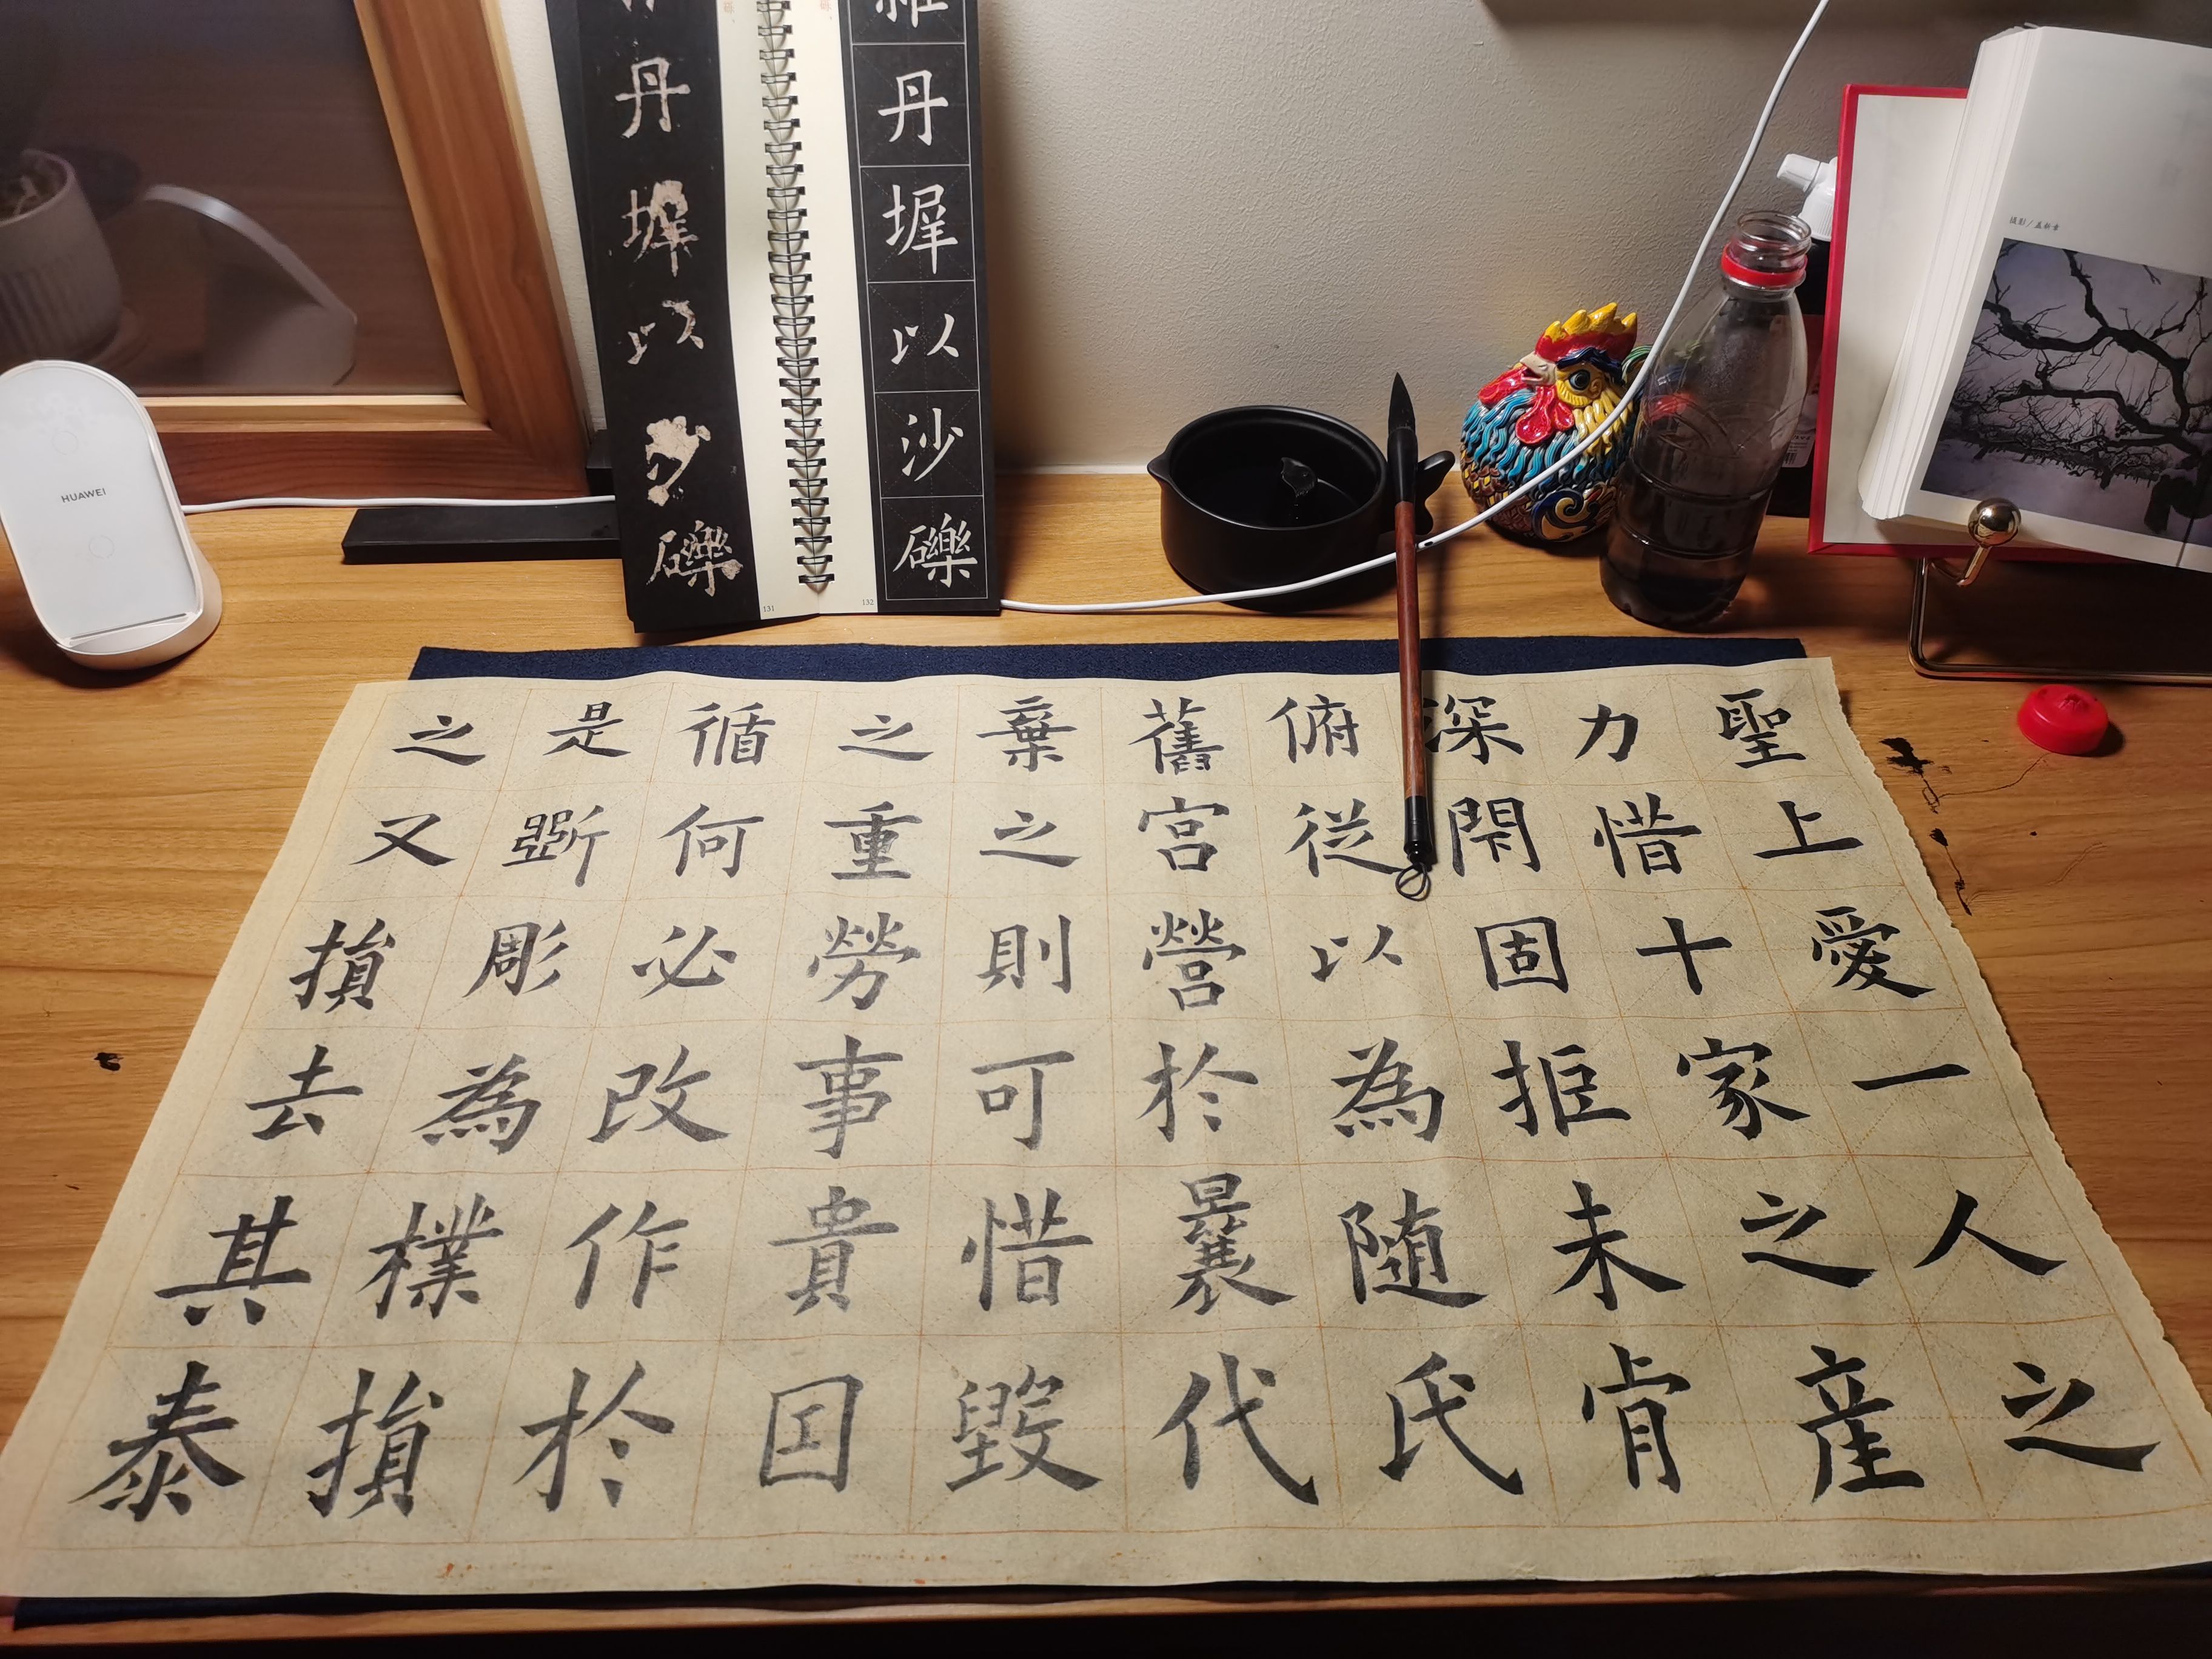 HUAWEI
丹墀以沙礫
131
雜丹墀以沙礫
132
聖上愛一人之
力惜十家之産
深閇固拒未肯
俯従以為随氏
舊宮營於曩代
棄之則可惜毀
之重勞事貴囙
循何必改作於
是斵彫為樸損
之又損去其泰